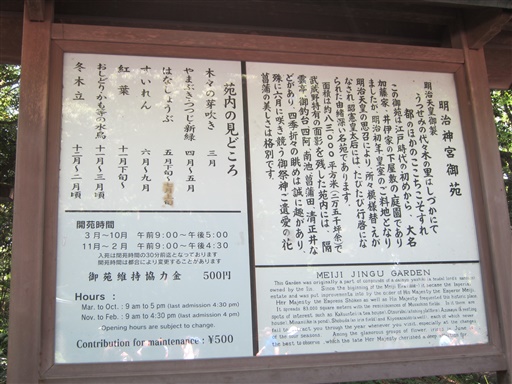 明治神宮御苑
明治天皇御製
うつせみの代々木の里はしづかにて
都のほかのここちこそすれ
この御苑は江戸時代の初めから、大名
加藤家、井伊家の下屋敷の庭園であり
ましたが、明治初年皇室の御料地となり
明治天皇の思召により、所々模様替えが
なされ、昭憲皇太后には、たびたび行啓にな
られた由緒深い名苑であります。
面積は約八三〇〇〇平方米(二万五千坪余)で
武蔵野特有の面影を残した苑内には、隔
雲亭、御釣台、四阿、南池、菖蒲田、清正井な
どがあり、四季折々の眺めは誠に趣があり、
殊に六月に咲き競う御祭神ご遺愛の花
菖蒲の美しさは格別です。
MEIJI JINGU GARDEN
This Garden was originally a part of
owned by the
estate and was put
Her Majesty the Empress Shoken as well as His Majesty frequented the historic place
It spreads 83,000 square meters with the
苑内の見どころ
木々の芽吹き 三月
やまぶき・つつじ・新緑 四月〜五月
はなしょうぶ 五月下旬〜
すいれん 六月〜九月
紅葉 十一月下旬〜
おしどり・かも等の水鳥 十二月〜三月頃
冬木立 十二月〜二月頃
開苑時間
3月〜10月 午前9:00〜午後5:00
11月〜2月 午前9:00〜午後4:30
入苑は閉苑時間の30分前迄となっております
開苑時間は都合により変更することがあります
御苑維持協力金 500円
Hours :
Mar. to Oct. : 9 am to 5 pm (last admission 4:30 pm)
Nov. to Feb. : 9 am to 4:30 pm (last admission 4 pm)
Opening hours are subject to change.
Contribution for maintenance : ¥500